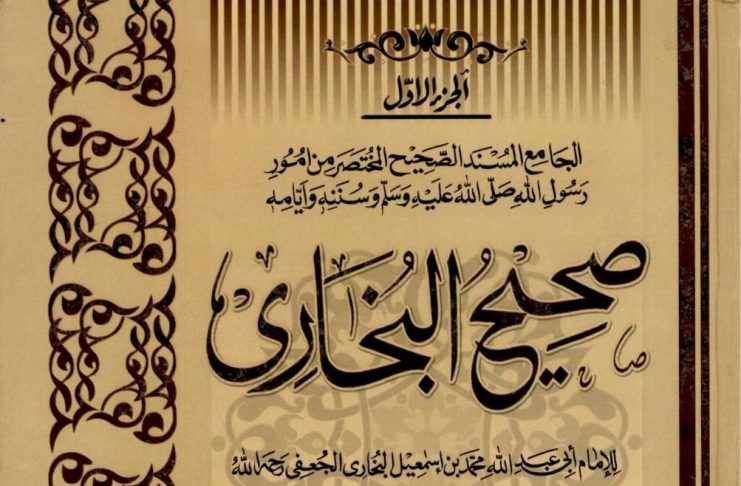 الجزء الاوّل
الجَامِع المُسْنَد الصَّحِيْح المُخْتَصَر مِنْ امُوْرِ
رَسُولِ اللهِ صَلَّى اللهُ عَلَيْهِ وَسَلَّم وَسُنَنِهٖ وَاَيَّامِهٖ
صَحِيْحُ البُخَارِى
لِلإمَام أبِى عَبدِ اللهِ مُحمَّد بن إسْمٰعِيْل البُخَارى الجُعفِى رَحِمَهُ اللهُ